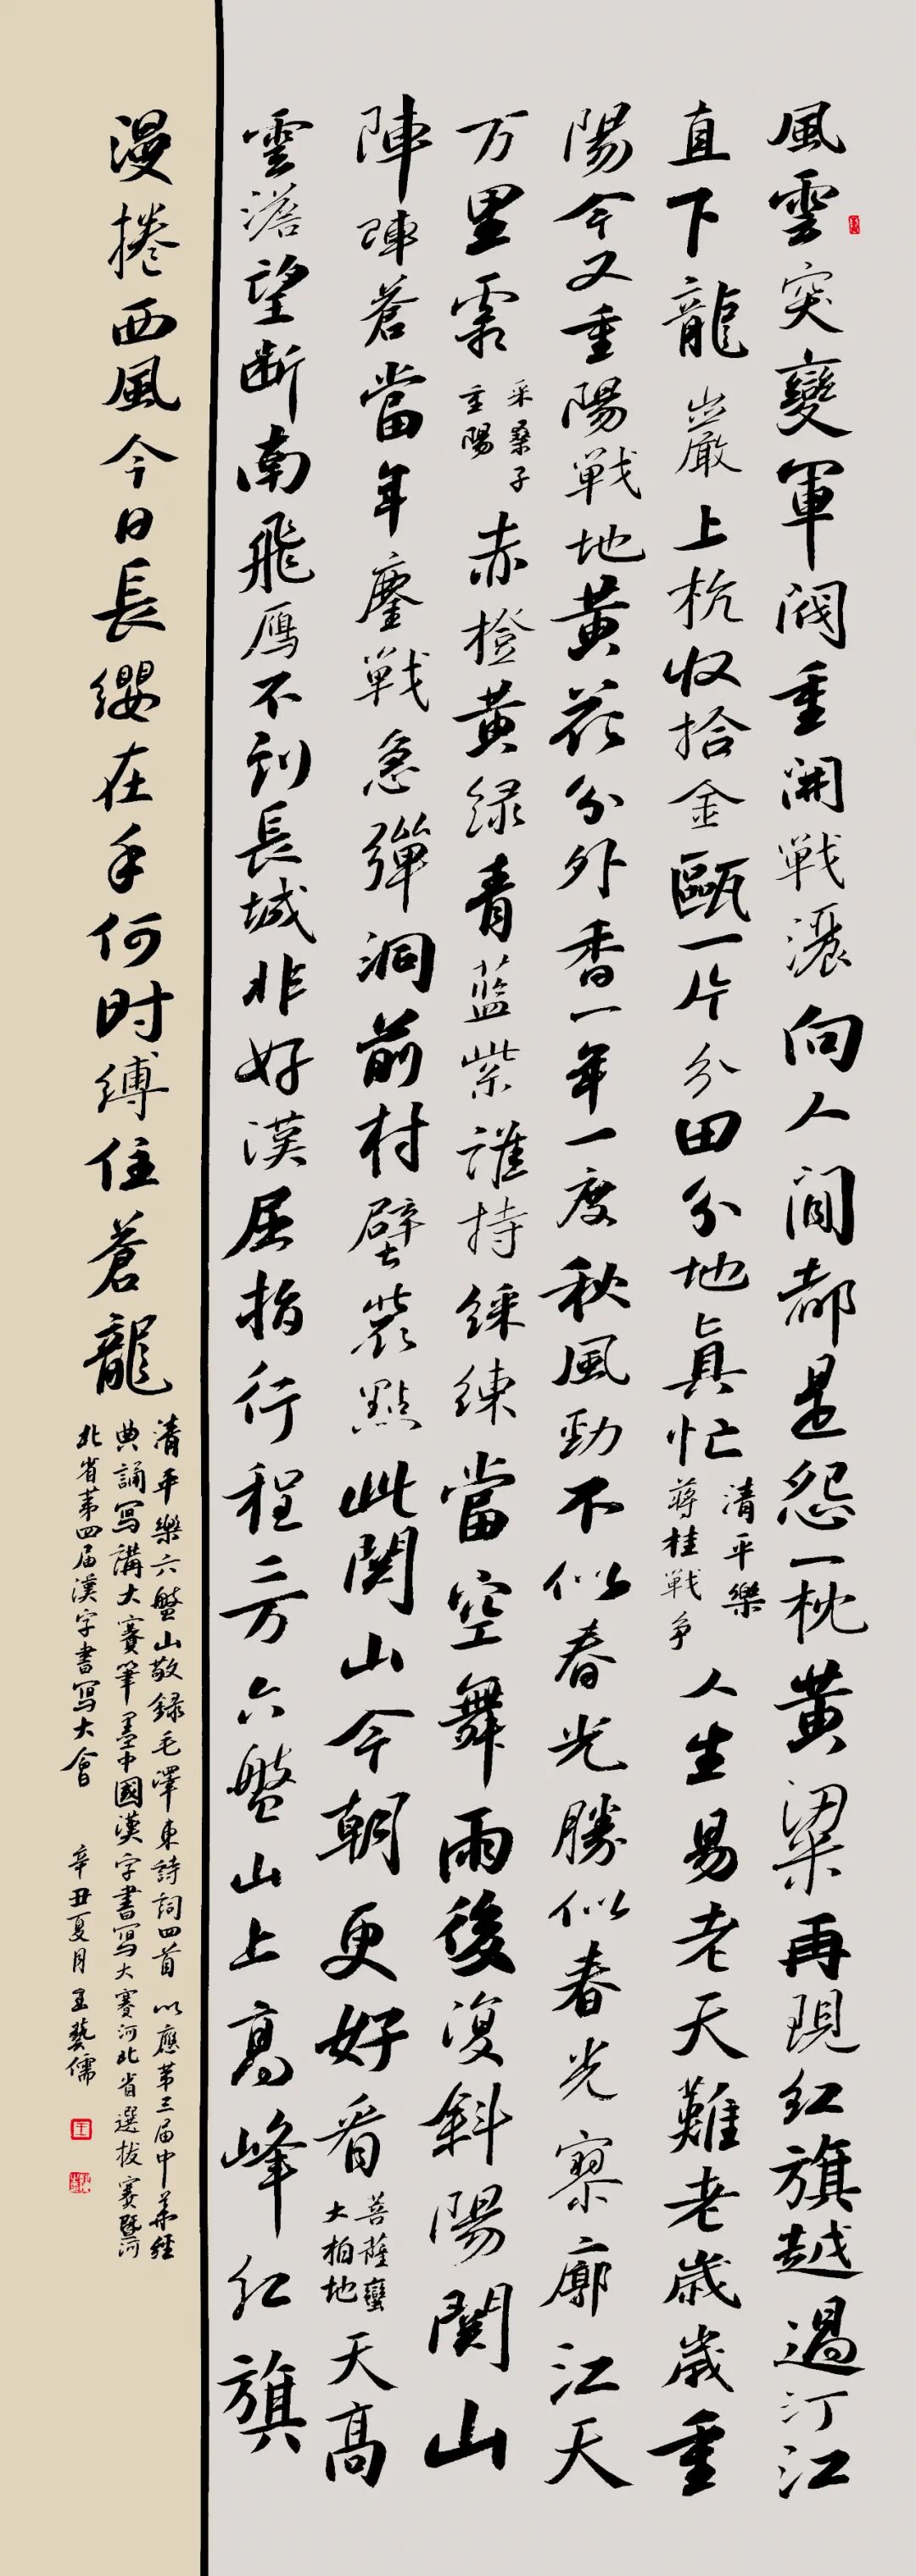 風雲突變軍閥重開戰灑向人間都是怨一枕黃粱再現红旗越過汀江
直下龍巖上杭收拾金甌一片分田分地真忙
清平樂
蔣桂戰争
人生易老天難老歲歲重
陽今又重陽戰地黄花分外香一年一度秋風勁不似春光勝似春光寥廓江天
万里霜
采桑子
重陽
赤橙黄绿青蓝紫誰持綵練當空舞雨後復斜陽関山
陣陣蒼當年鏖戰急彈洞前村壁裝點此関山今朝更好看
菩薩蠻
大柏地
天高
雲澹望断南飛雁不到長城非好漢屈指行程二万六盤山上高峰红旗
漫捲西風今日長纓在手何时縛住蒼龍
清平樂六盤山敬録毛澤東詩詞四首以應第三届中華經
典誦寫講大賽筆墨中國漢字書寫大賽河北省選拔賽暨河
北省第四届漢字書寫大會
辛丑夏月王藝儒